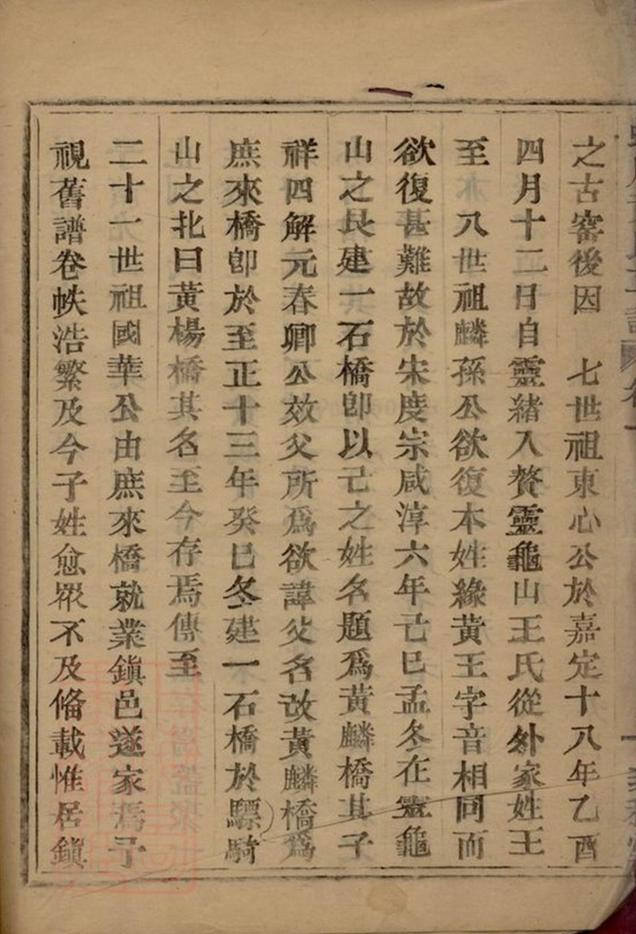 之古窰後因　七世祖東心公於嘉定十八年乙酉
四月十二日自靈緒入贅靈龜山王氏從外家姓王
至　八世祖麟孫公欲復本姓緣黃王字音相同而
欲復甚難故於宋度宗咸淳六年己巳孟冬在靈龜
山之艮建一石橋卽以己之姓名題爲黃麟橋其子
祥四解元春卿公效父所爲欲諱父名改黃麟橋爲
庶來橋卽於至正十三年癸巳冬建一石橋於驃騎
山之北曰黃楊橋其名至今存焉傳至
二十一世祖國華公由庶來橋就業鎭邑遂家焉予
視舊譜卷帙浩繁及今子姓愈眾不及備載惟居鎭